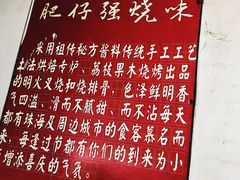 肥仔强烧味
采用祖传秘方酱料传统手工工艺
土法烘焙专炉、荔枝果木烧烤出品
的明火叉烧和烧排骨，色泽鲜明香
气四溢、清而不腻甜、而不沾每天
都有珠海及周边城市的食客慕名而
来，每逢过节都有你们的到来为小
增添喜庆的气氛。